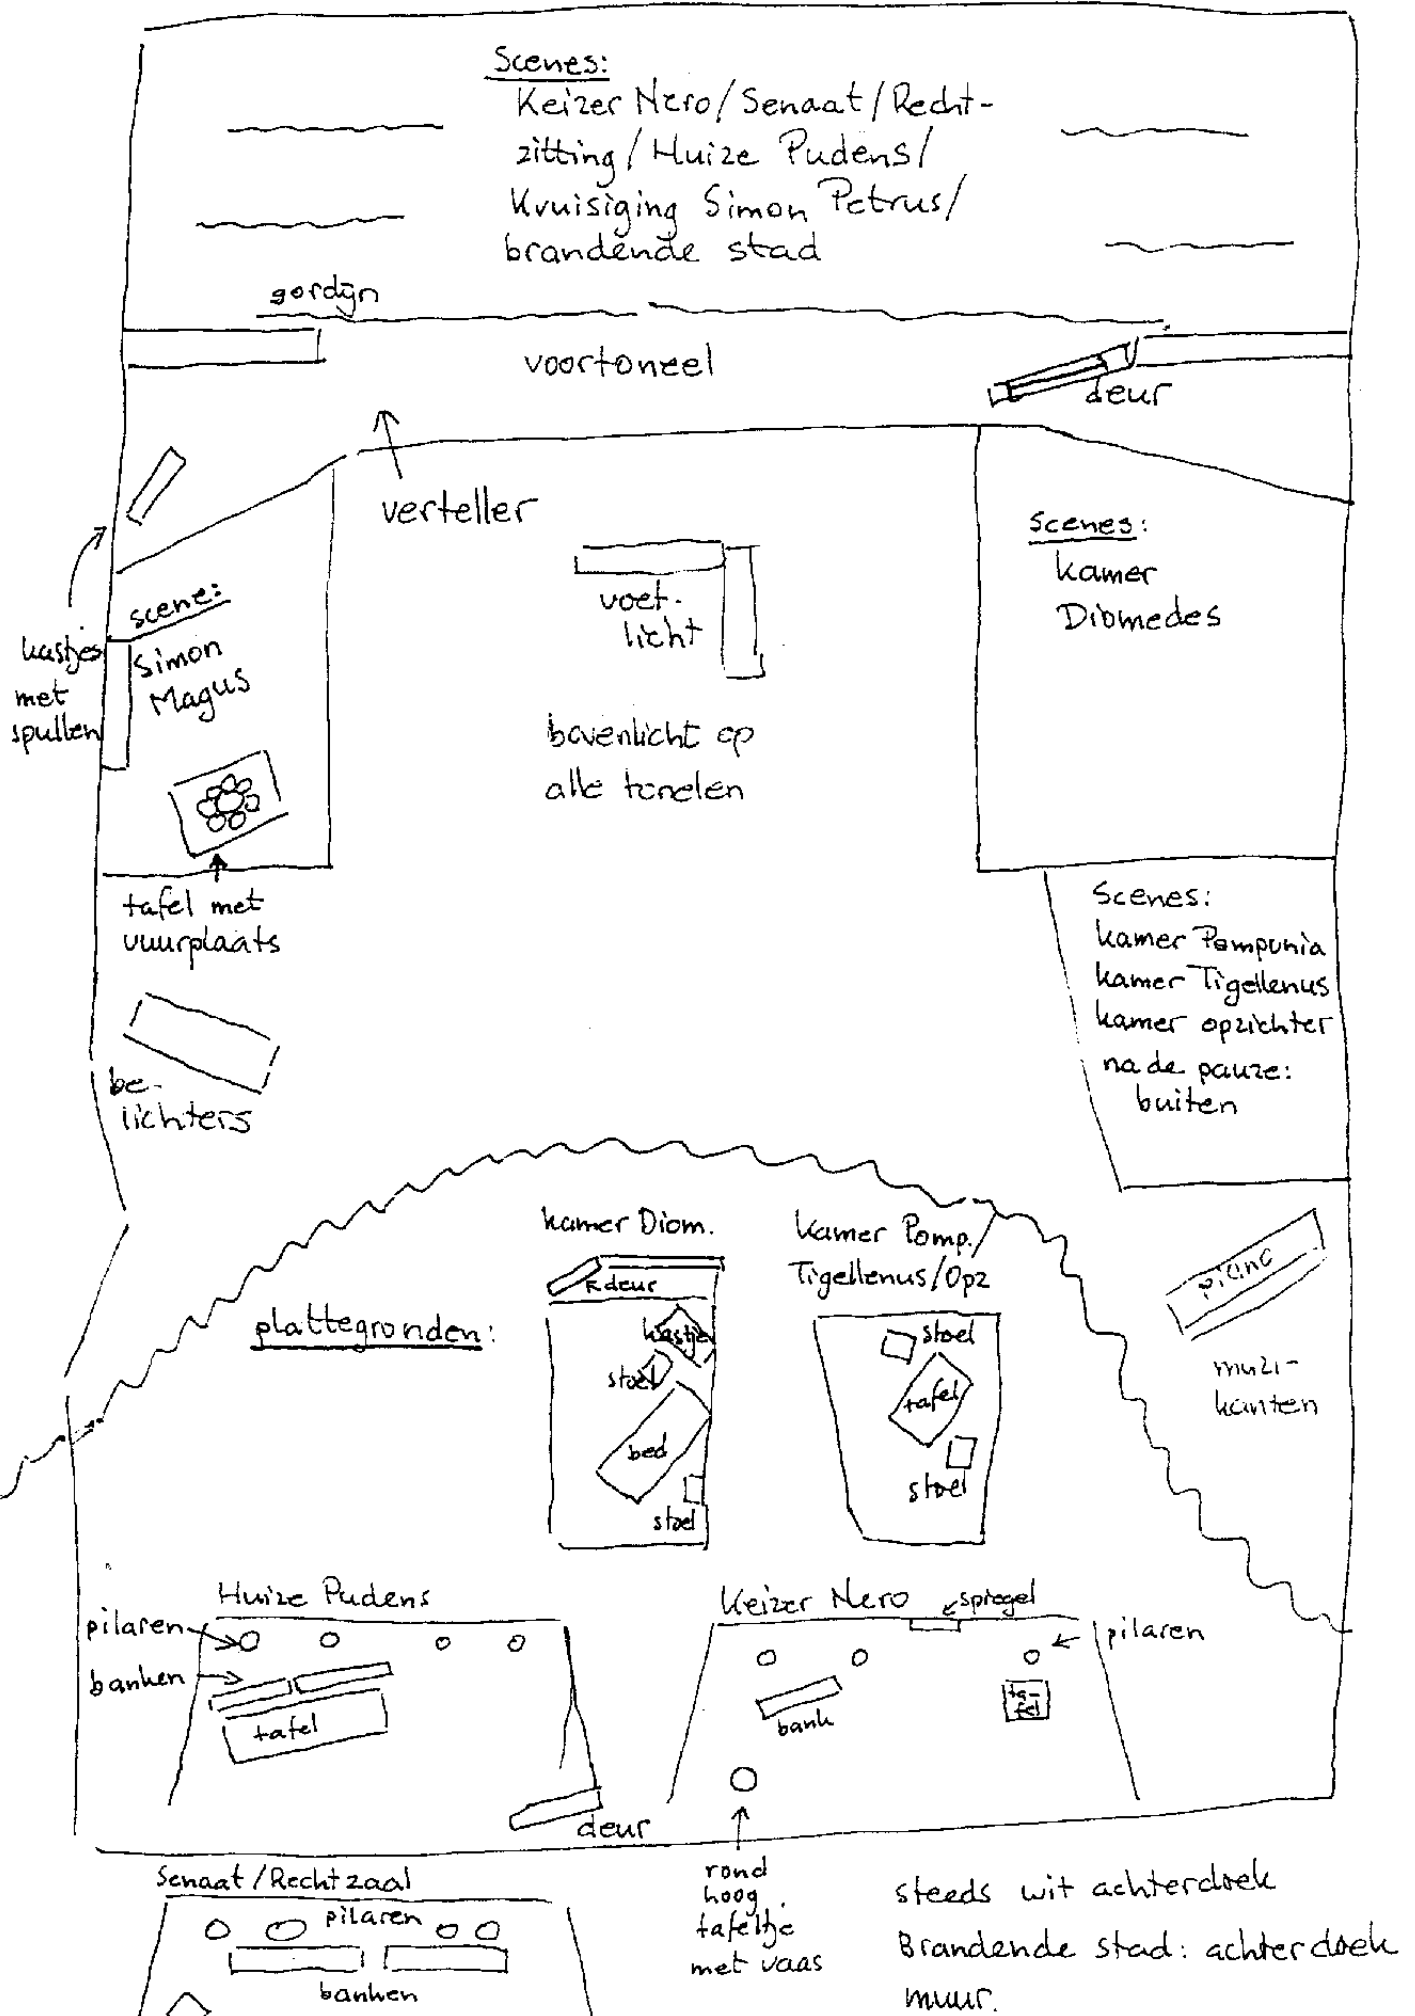 Scenes:
Keizer Nero/Senaat/Recht-
zitting/Huize Pudens/
Kruisiging Simon Petrus/
brandende stad
gordijn
voortoneel
deur
verteller
scene:
Simon
Magus
kastjes
met
spullen
voet-
licht
bovenlicht op
alle tonelen
Scenes:
kamer
Diomedes
tafel met
vuurplaats
Scenes:
kamer Pompunia
kamer Tigellenus
kamer opzichter
na de pauze:
buiten
be-
lichters
kamer Diom.
deur
kastje
stoel
bed
stoel
kamer Pomp./
Tigellenus/Opz
stoel
tafel
stoel
piano
muzi-
kanten
plattegronden:
Huize Pudens
pilaren
banken
tafel
deur
Keizer Nero
spiegel
pilaren
bank
ta-
fel
rond
hoog
tafeltje
met vaas
Senaat/Rechtzaal
pilaren
banken
steeds wit achterdoek
Brandende stad: achterdoek
muur.